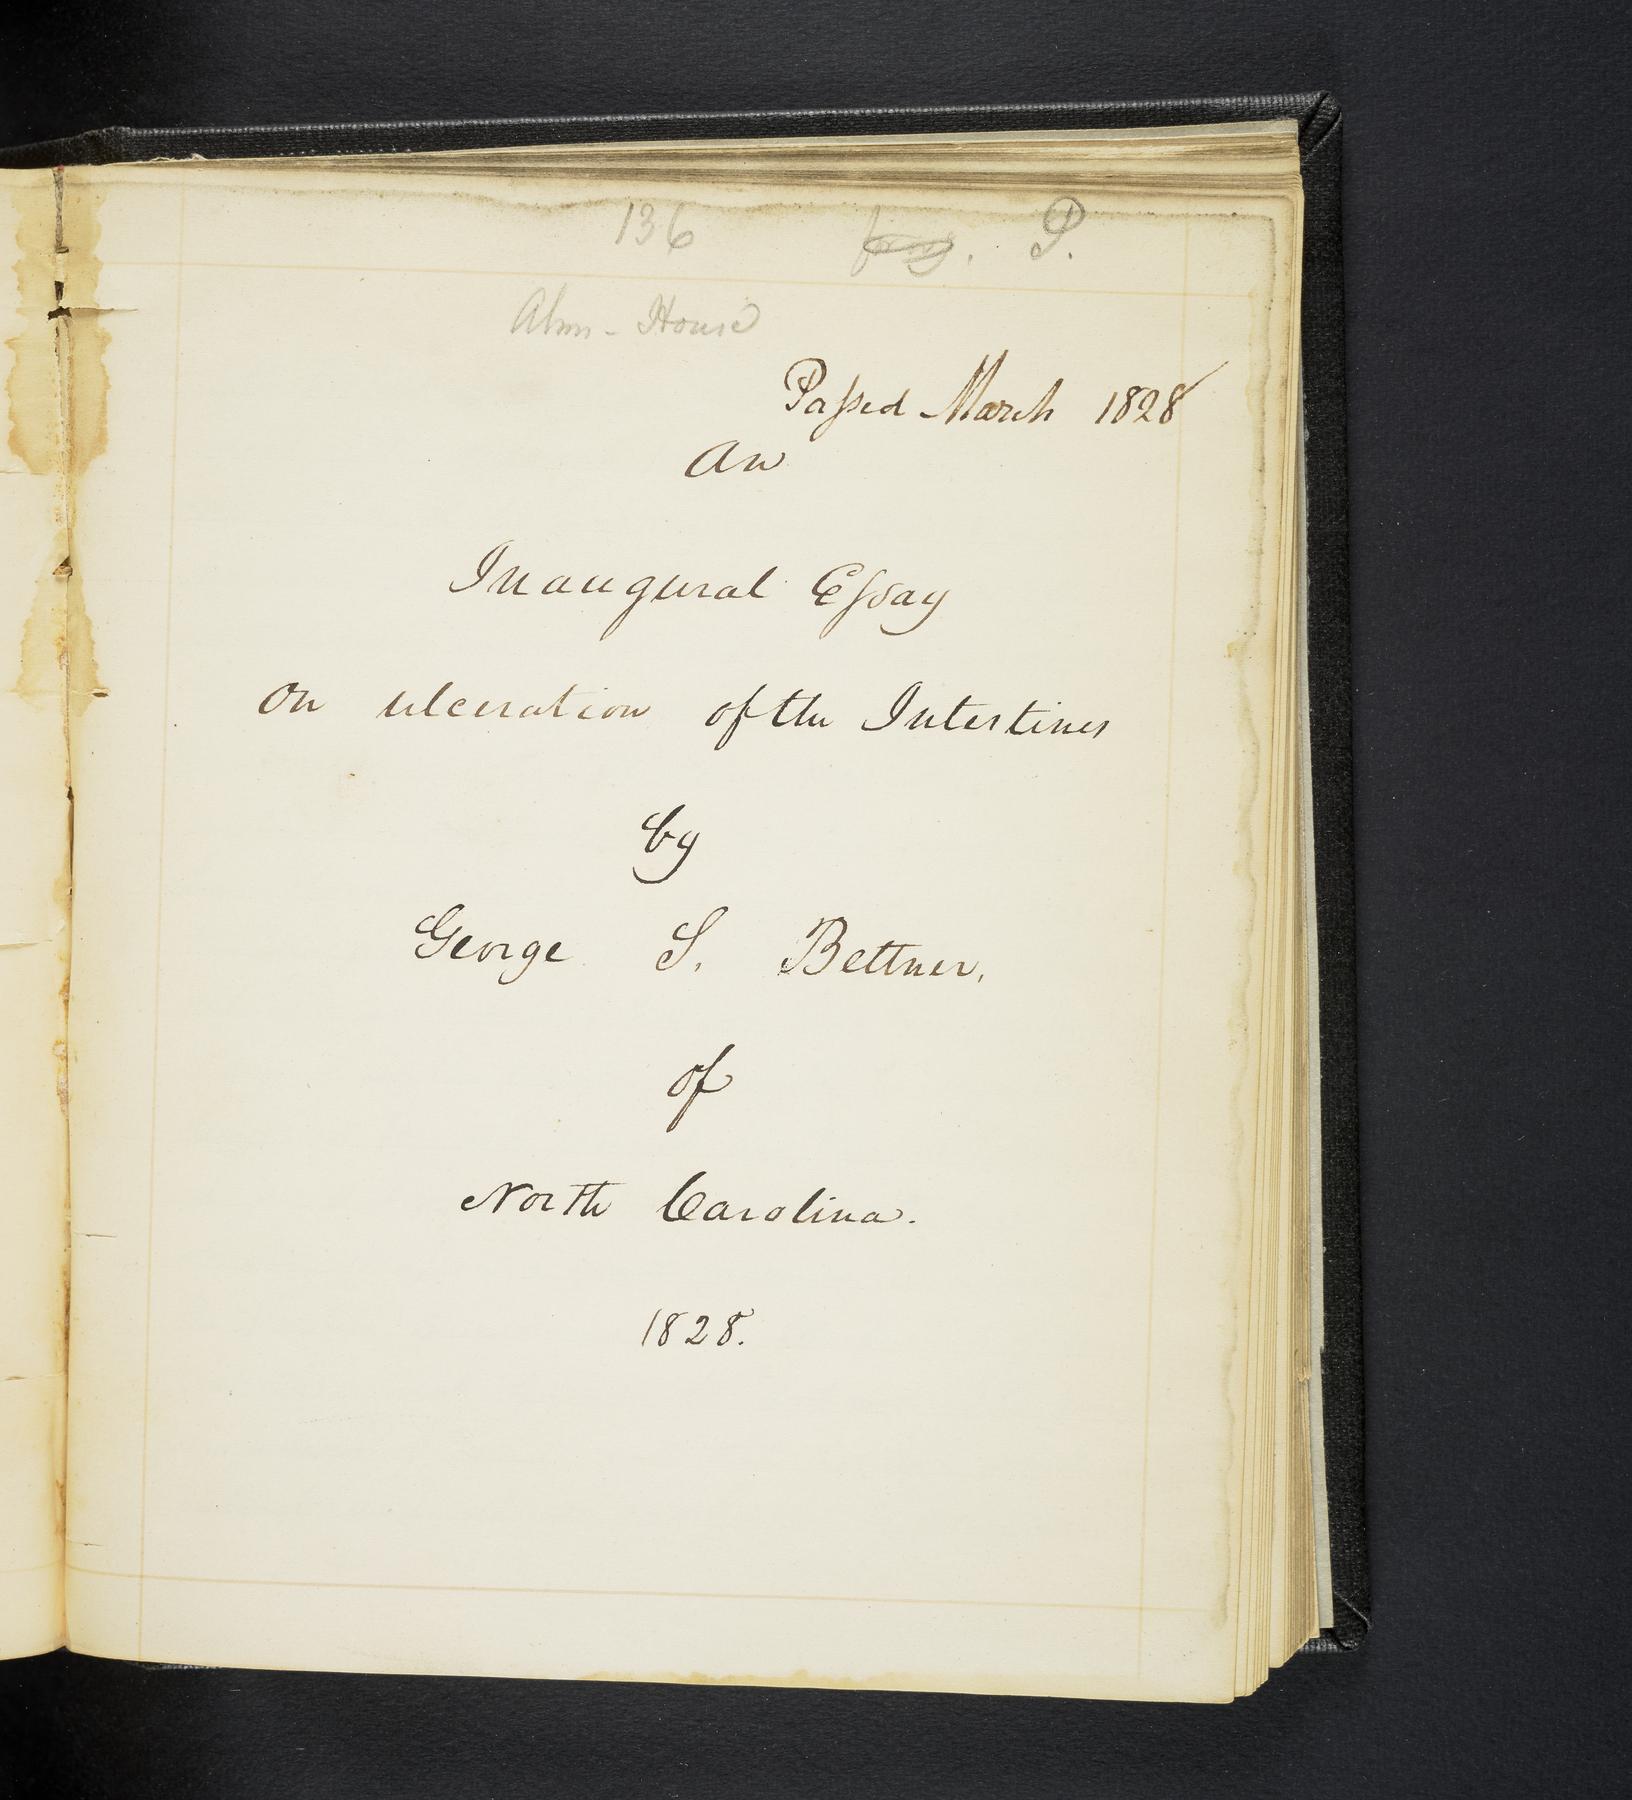 136 P.
Alms-House
Passed March 1828
An
Inaugural Essay
On ulceration of the Intestines
by
George S. Bettner,
of
North Carolina.
1828.